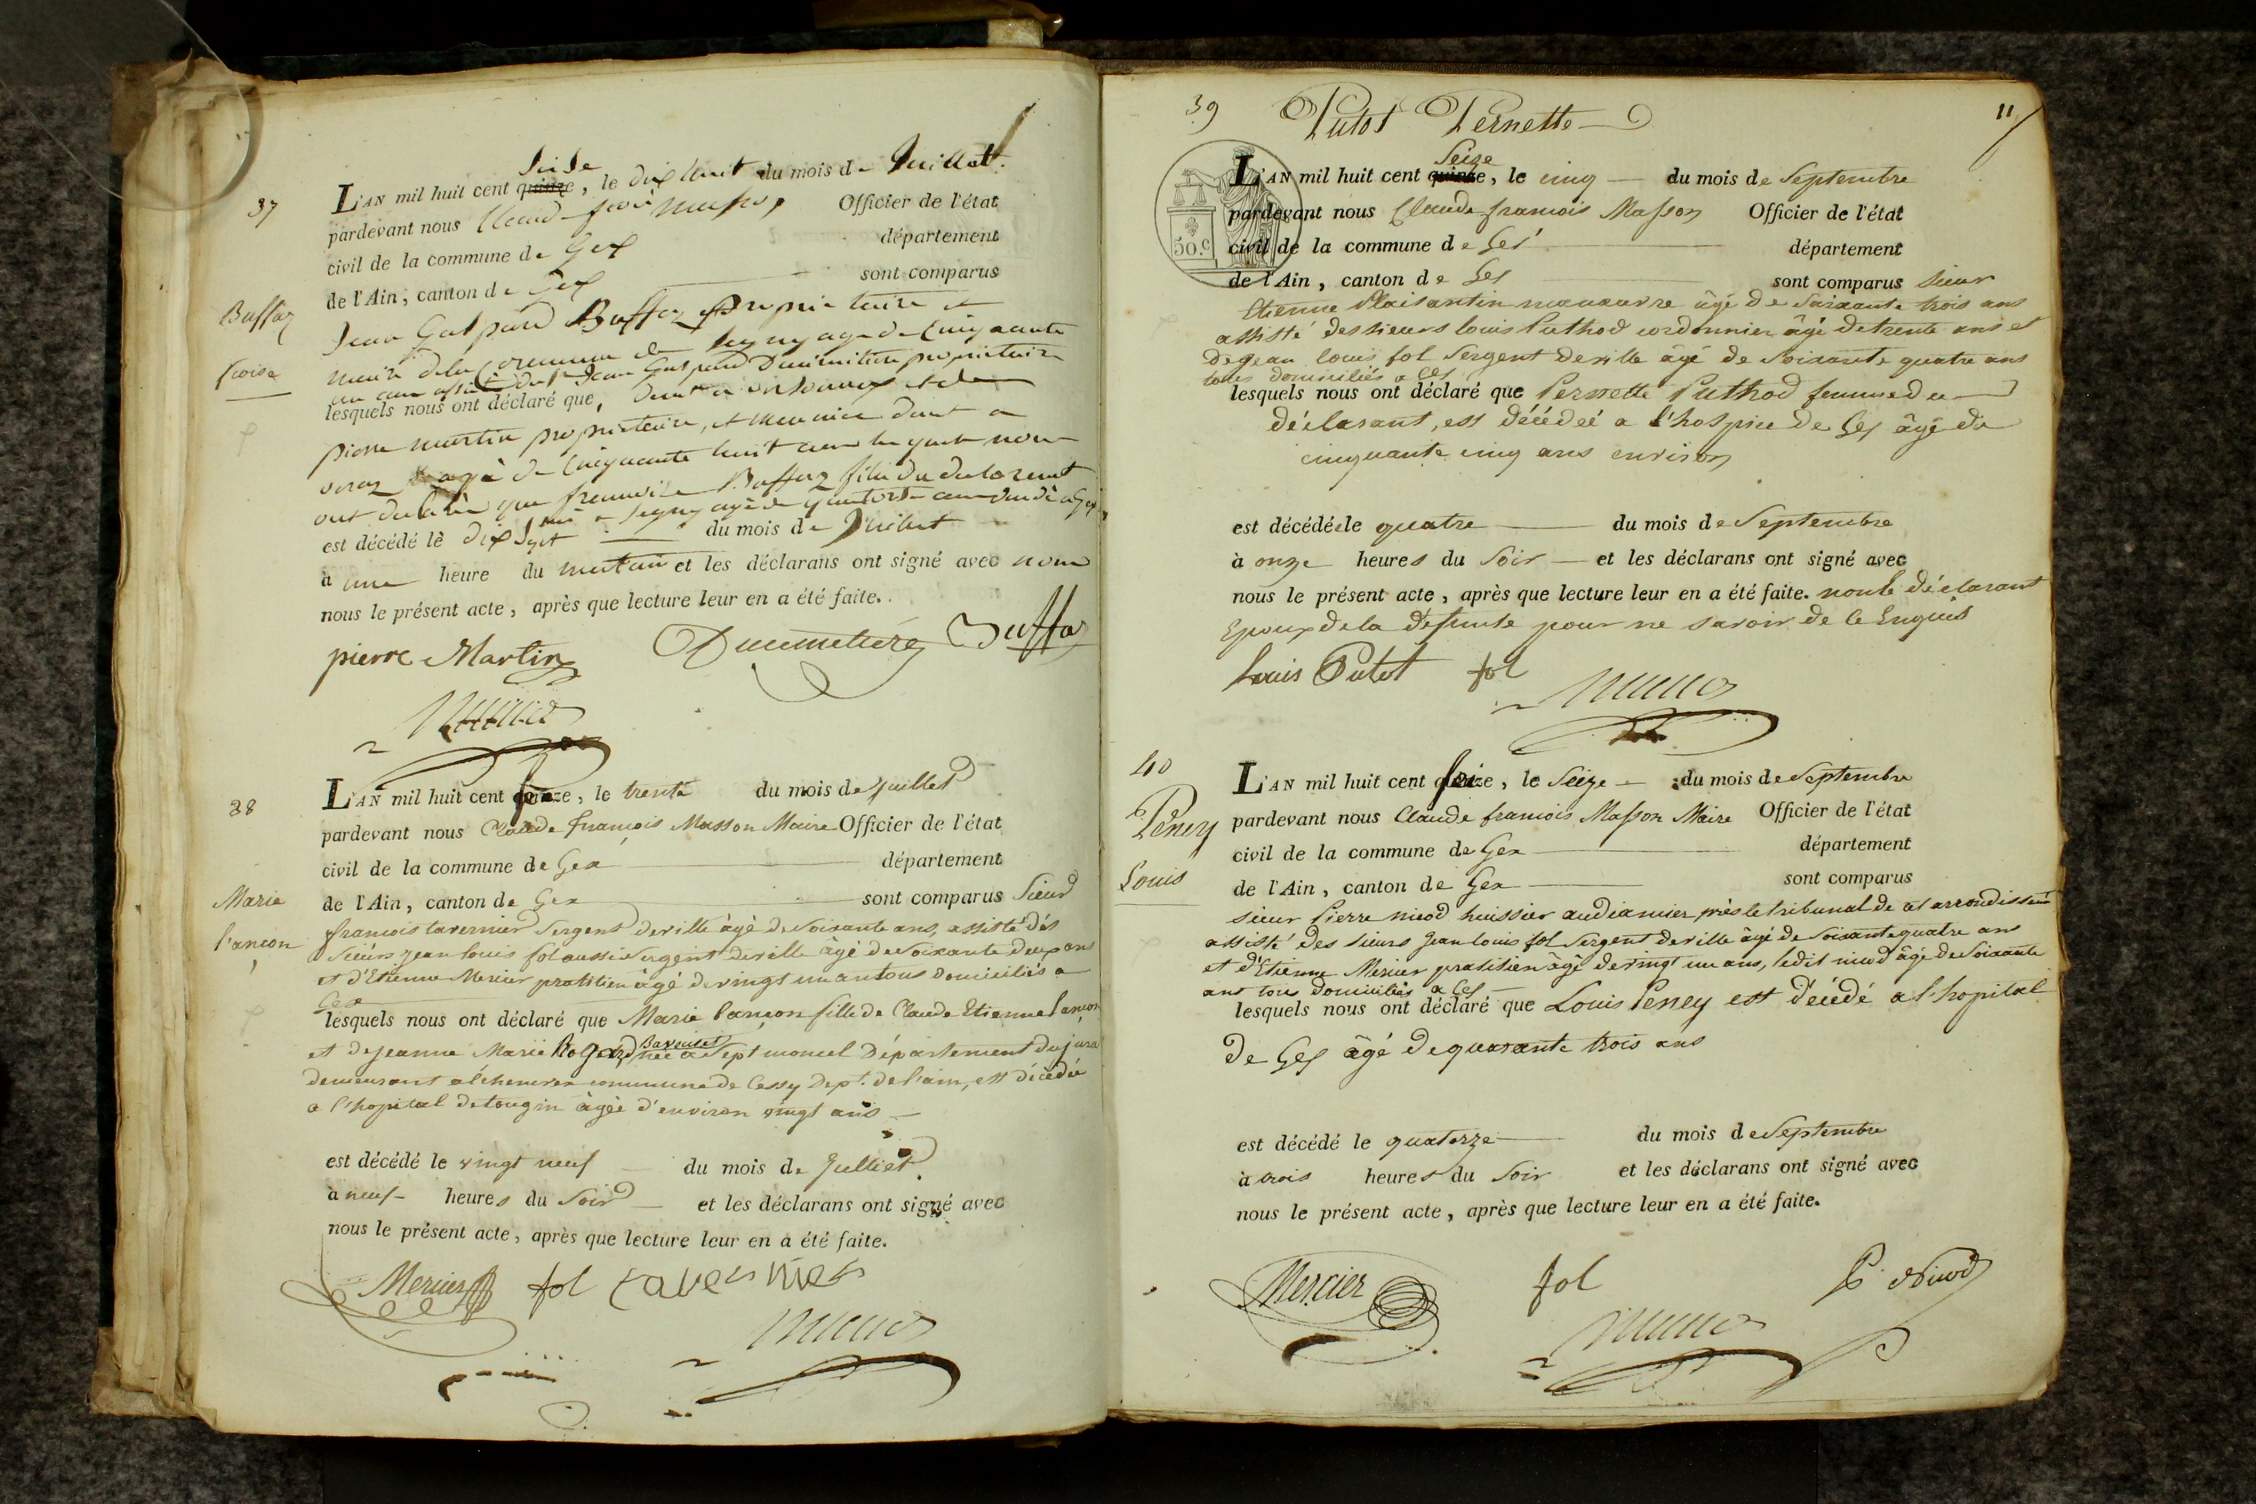 37
Buffaz
fcoise
seise
L'AN mil huit cent quinze, le dix huit du mois de Juillet
pardevant nous Claude fcois Masson Officier de l'état
civil de la commune de Gex département
de l'Ain, canton de Gex sont comparus
Jean Gaspard Buffaz proprietaire et
maire de la commune de Segny agé de Cinquante
un ans assisté du sr Jean Gaspard Dumimetiere proprietaire
lesquels nous ont déclaré que, demt a et de
pierre martin proprietaire, et demt a
agé de Cinquante huit ans lesquels nous
ont declaré que francoise Buffaz fille du declarant
née a Segny agée de quatorse ans a Gex
est décédé le dix Sept du mois de Juillet
à une heure du matin et les déclarans ont signé avec nous
nous le présent acte, après que lecture leur en a été faite.
pierre Martin Ducimetière Buffaz
38
Marie
Lançon
L'AN mil huit cent seize, le trente du mois de Juillet
pardevant nous Claude françois Masson Maire Officier de l'état
civil de la commune de Gex département
de l'Ain, canton de Gex sont comparus Sieur
françois tavernier Sergent de ville âgé de Soixante ans, assisté dés
Sieurs jean louis fol aussi Sergent de ville âgé de Soixante deux ans
et d'Etienne Mercier pratitien âgé de vingt un an tous domiciliés a
Gex
lesquels nous ont déclaré que Marie Lançon fille de Claude Etienne Lançon
Bavouset
et de jeanne Marie née a Sept moncel Département du jura
demeurant a l'chenevex commune de Cessy Dept. de l'ain, est décédée
a l'hopital de tougin âgée d'environ vingt ans
est décédé le vingt neuf du mois de Julliet
à neuf heures du Soir et les déclarans ont signé avec
nous le présent acte, après que lecture leur en a été faite.
Mercier fol tavernier
39 Putot Pernette 11
50.c
Seize
L'AN mil huit cent quinze, le cinq du mois de Septembre
pardevant nous Claude francois Masson Officier de l'état
civil de la commune de Gex département
de l'Ain, canton de Gex sont comparus sieur
Etienne Plaisantin manœuvre âgé de Soixante trois ans
assisté des sieurs louis Puthod cordonnier âgé de trente ans et
de jean louis fol Sergent de ville âgé de Soixante quatre ans
tous domiciliés a Gex
lesquels nous ont déclaré que Pernette Puthod femme du
déclarant, est décédeé a l'hospice de Gex âgé de
cinquante cinq ans environ
est décédée le quatre du mois de Septembre
à onze heures du Soir et les déclarans ont signé avec
nous le présent acte, après que lecture leur en a été faite. non le déclarant
Epoux de la defunte pour ne savoir de ce Enquis
Louis Putot fol
40
Péney
Louis
L'AN mil huit cent seize, le Seize du mois de Septembre
pardevant nous Claude francois Masson Maire Officier de l'état
civil de la commune de Gex département
de l'Ain, canton de Gex sont comparus
sieur Pierre nicod huissier audiancier près le tribunal de cet arrondissemt
assisté des sieurs jean louis fol Sergent de ville âgé de Soixante quatre ans
et d'Etienne Mercier pratitien âgé de vingt un ans, ledit nicod âgé de Soixante
ans tous domiciliés a Gex
lesquels nous ont déclaré que Louis Peney est décédé a l'hopital
de Gex âgé de quarante trois ans
est décédé le quatorze du mois de Septembre
à trois heures du Soir et les déclarans ont signé avec
nous le présent acte, après que lecture leur en a été faite.
Mercier fol P. Nicod